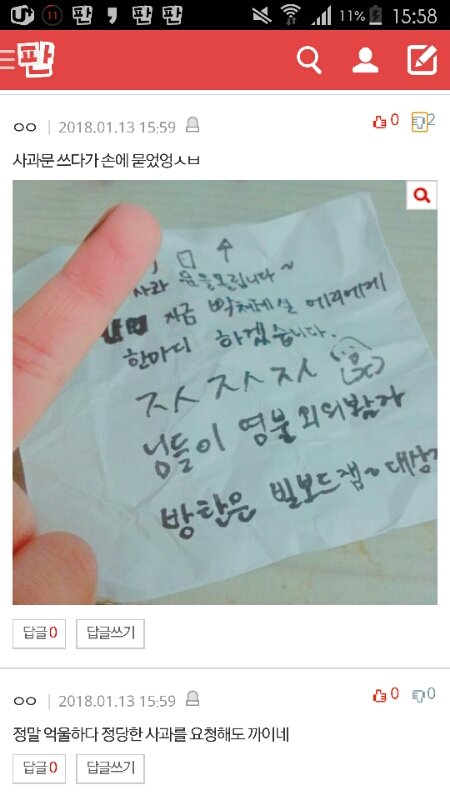 11 판 , 판 판 11% 15:58
판
ㅇㅇ | 2018.01.13 15:59 0 2
사과문 쓰다가 손에 묻었엉ㅅㅂ
사과문을올립니다~
지금 빡쳐계실 에리에게
한마디 하겠습니다.
ㅈㅅㅈㅅㅈㅅ
님들이 영불외의밤가
방탄은 빌보드잽~대상
답글 0 답글쓰기
ㅇㅇ | 2018.01.13 15:59 0 0
정말 억울하다 정당한 사과를 요청해도 까이네
답글 0 답글쓰기